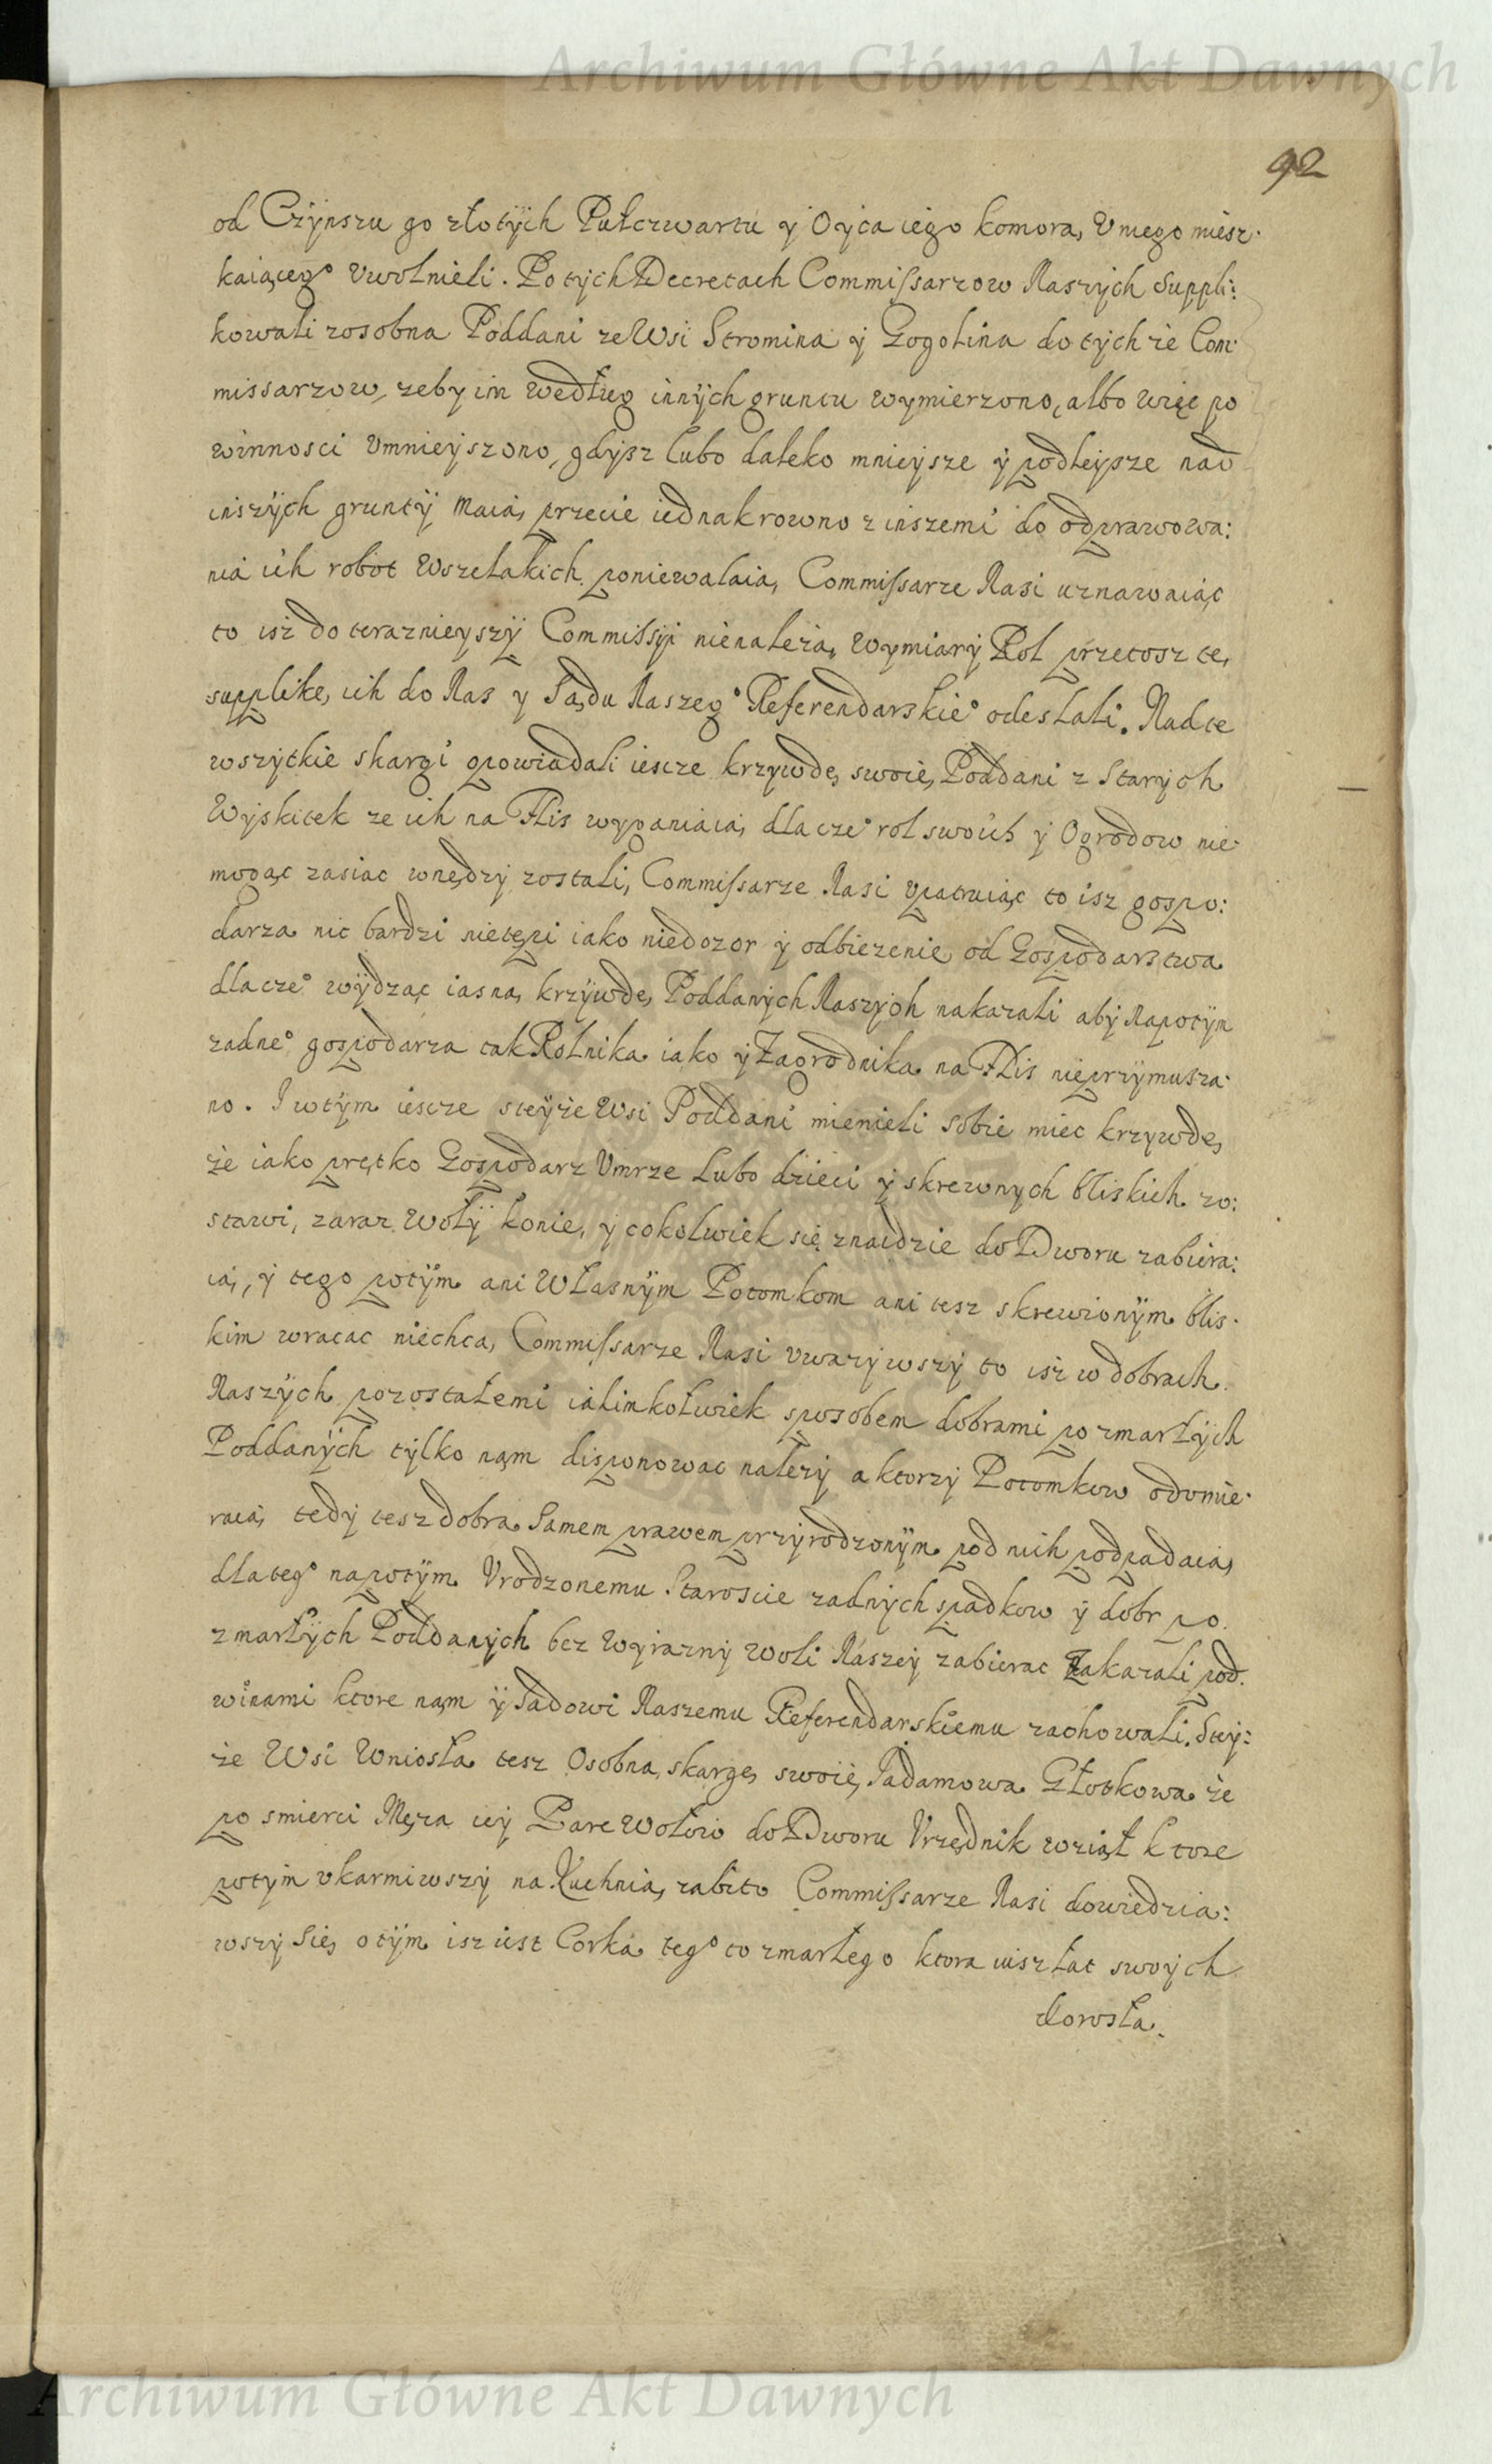 Archiwum Główne Akt Dawnych
92
od Czÿnszu go złotÿch Pułczwartu ÿ Oÿca iego komorą Vniego miesz:
kaiąceg° Vwolnieli. Po tÿch Decretach Commissarzow Naszÿch Suppli:
kowali zosobna Poddani ze Wsi Stromina ÿ Gogolina do tÿch że Com:
missarzow, zebÿ im według innÿch gruntu wymierzono, albo więc po
winnosci Vmnieÿszono, gdÿsz lubo daleko mnieÿsze ÿ podleÿsze nad
inszÿch gruntÿ maią, przecie iednak rowno z inszemi do odprawowa:
nia ich robot wszelakich poniewalaią, Commissarze Nasi uznawaiąc
to isz do teraznieÿszÿ Commissÿi nienależą Wÿmiarÿ Rol przetosz tę
supplikę ich do Nas y Sądu Naszeg° Referendarskie° odesłali. Nad te
wszÿtkie skargi opowiadali iescze krzÿwdę swoię Poddani z Starÿch
Wÿskitek ze ich na Flis wÿganiaią, dla cze° rol swoich ÿ Ogrodow nie
mogąc zasiac wnędzÿ zostali, Commissarze Nasi vpatruiąc to isz gospo:
darza nic bardzi nietępi iako niedozor ÿ odbiezenie od Gospodarstwa
dla cze° wÿdząc iasną krzÿwdę Poddanÿch Naszÿch nakazali abÿ Napotÿm
zadne° gospodarza tak Rolnika iako ÿ Zagrodnika na Flis nieprzÿmusza
no. I wtÿm iescze steÿże Wsi Poddani mienieli sobie miec krzÿwdę
że iako prętko Gospodarz Vmrze lubo dzieci ÿ skrewnych bliskich zo:
stawi, zaraz Wołÿ konie, ÿ cokolwiek się znaidzie do Dworu zabiera:
ią, ÿ tego potÿm ani Własnÿm Potomkom ani tesz skrewionÿm blis:
kim wracac niechcą, Commissarze Nasi vwazÿwszÿ to isz w dobrach
Naszÿch pozostałemi iakimkolwiek sposobem dobrami po zmarłÿch
Poddanÿch tÿlko nąm disponowac należÿ a ktorzÿ Potomkow odumie
raią tedÿ tesz dobra Samem prawem przÿrodzonÿm pod nich podpadaią
dlateg° napotÿm Vrodzonemu Staroscie zadnÿch spadkow ÿ dobr po
zmarłÿch Poddanÿch bez Wÿrazny woli Naszeÿ zabierac Zakazali pod
winami ktore nąm ÿ Sadowi Naszemu Referendarskiemu zachowali. Steÿ:
że Wsi Wniosła tesz Osobną skargę swoię Jadamowa Głotkowa że
po smierci Męża ieÿ Parę Wołow do Dworu Vrzędnik wziął ktore
potÿm vkarmiwszÿ na Kuchnią zabito Commissarze Nasi dowiedzia:
wszÿ się otÿm isz iest Corka teg° to zmarłego ktora iusz lat swoÿch
dorosła.
Archiwum Główne Akt Dawnych